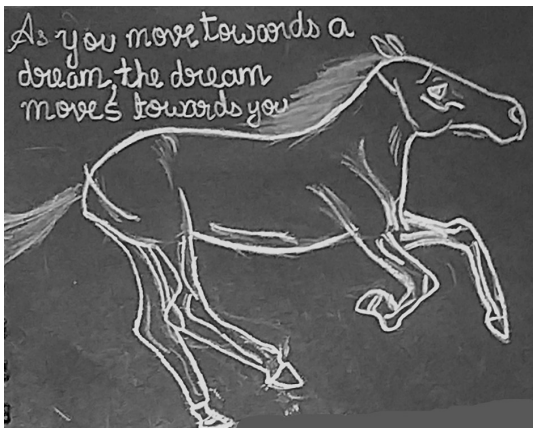 As you move towards a
dream, the dream
moves towards you